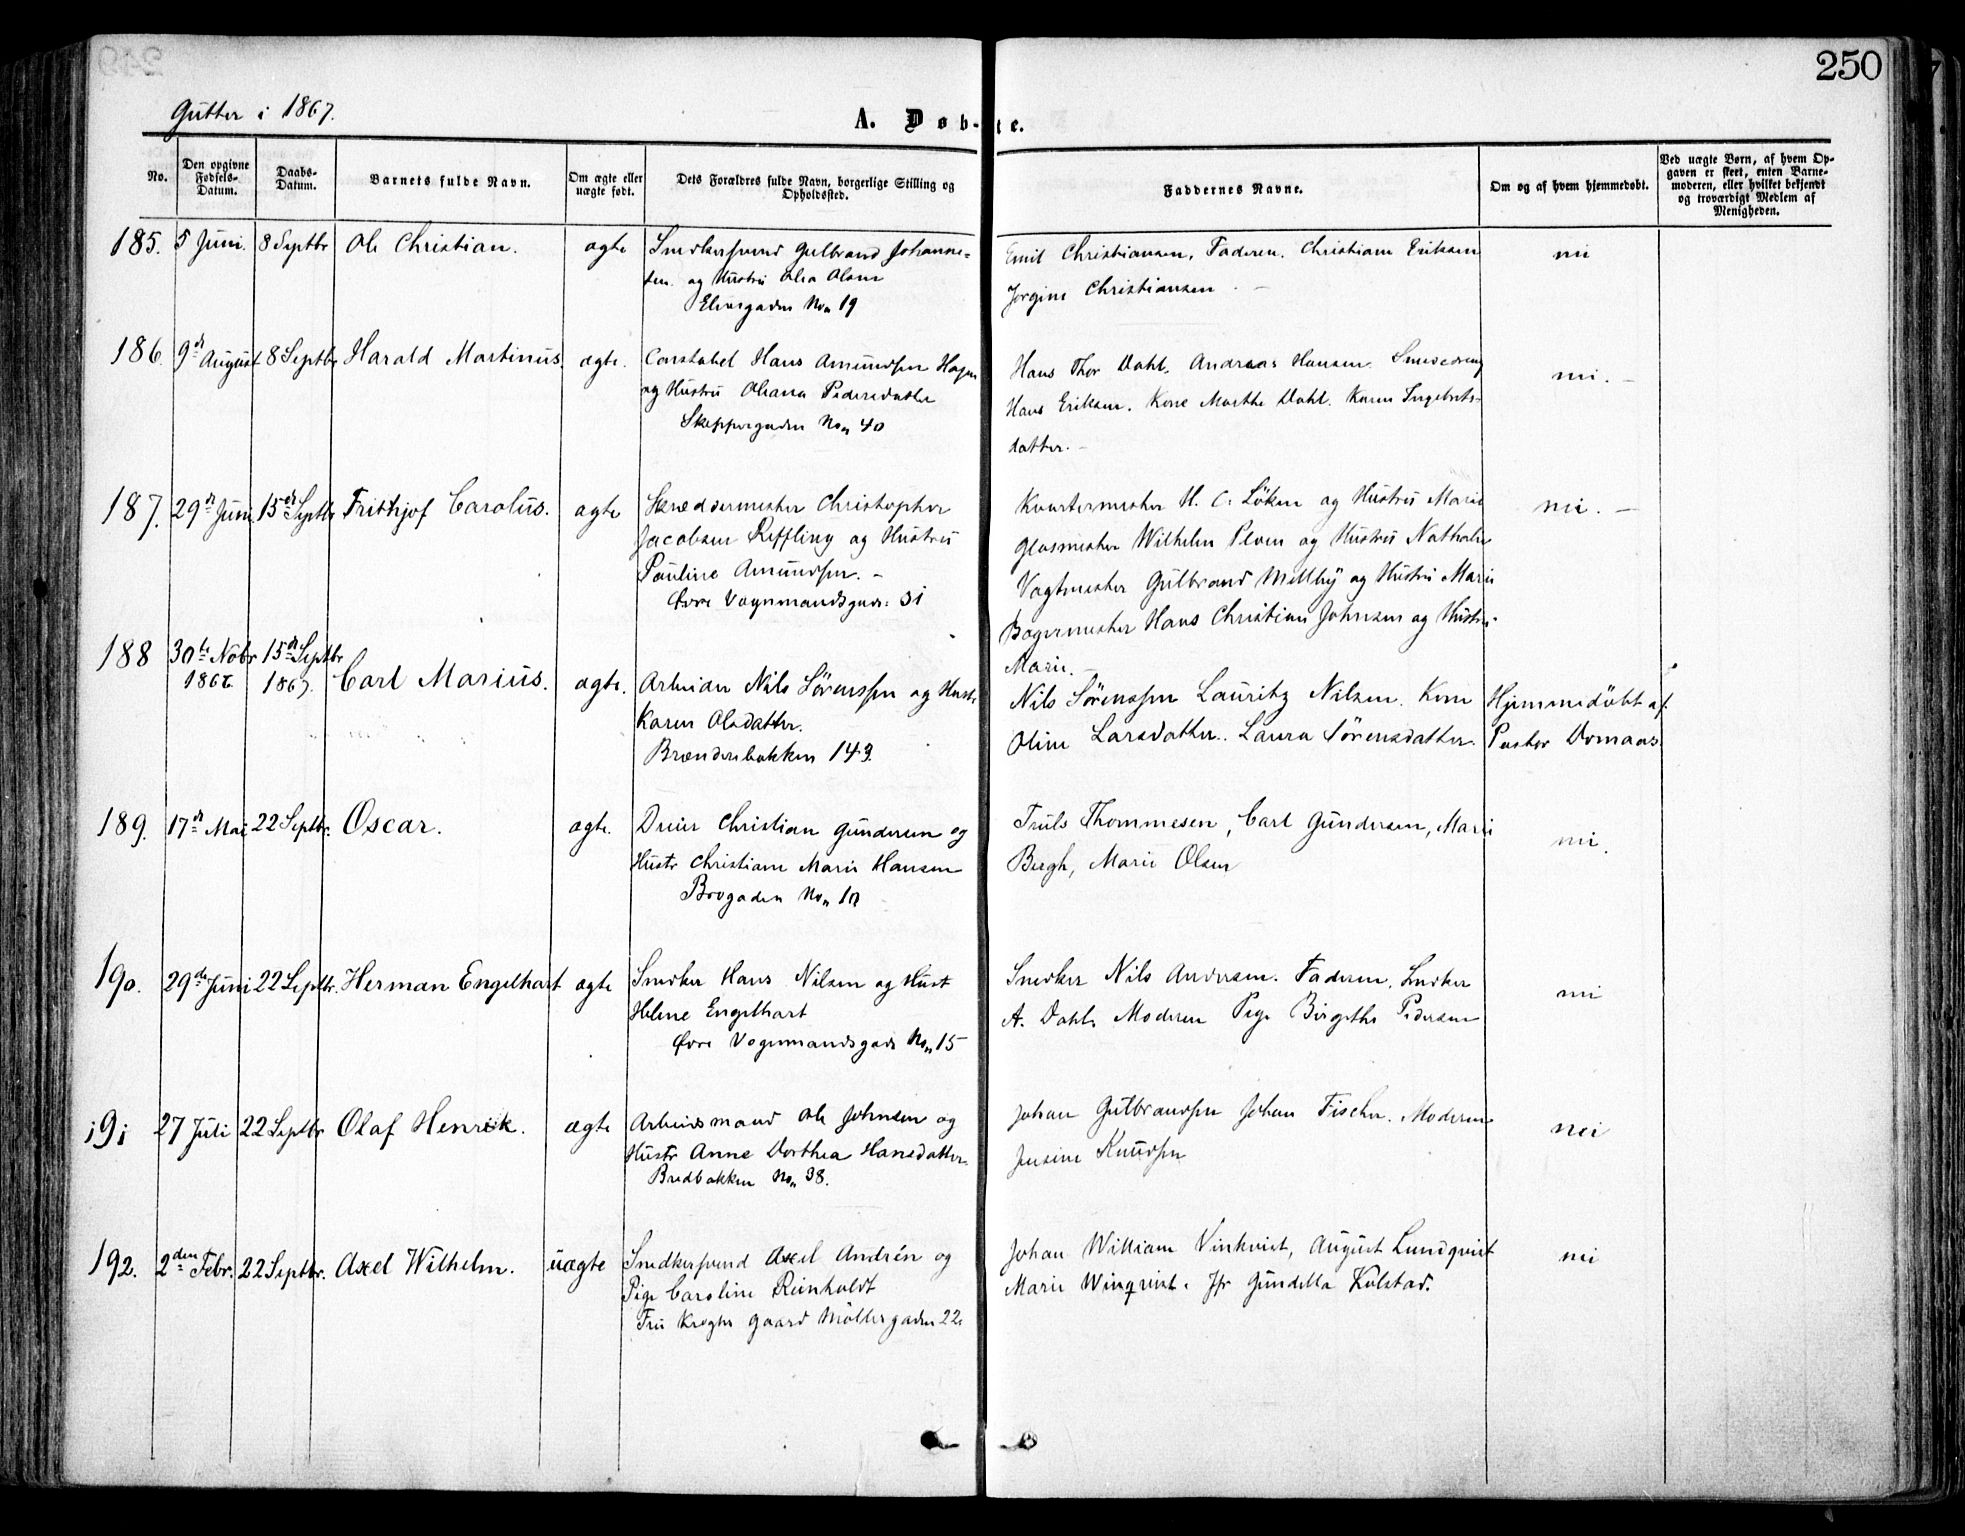 250
Gutter i 1867.
A. Døbte.
No.
Den opgivne Fødsels-Datum.
Daabs-Datum.
Barnets fulde Navn.
Om ægte eller uægte født.
Dets Forældres fulde Navn, borgerlige Stilling og Opholdssted.
Faddernes Navne.
Om og af hvem hjemmedøbt.
Ved uægte Børn, af hvem Opgaven er skeet, enten Barnemoderen, eller hvilket bekjendt og troværdigt Medlem af Menigheden.
185. 5 Juni. 8 Septbr Ole Christian. ægte Snedkersvend Gulbrand Johanne-
sen og Hustru Olea Olsen
Elvegaden No 19
Emil Christiansen, Faderen, Christian Eriksen nei
Jørgine Christiansen
186. 9de August 8 Septbr Harald Martinus. ægte. Constabel Hans Amundsen Hagen
og Hustru Oleana Pedersdatter
Skippergaden No 40
Hans Thor Dahl, Andreas Hansen nei.
Hans Eriksen, Kone Marthe Dahl. Karen Ingebrets-
datter.
187. 29de Juni 15de Septbr Frithjof Carolus. ægte Skræddermester Christopher
Jacobsen Reffling og Hustru
Pauline Amundsen.
Øvre Vognmandsgad: 31
Kvartermester H. C. Löken og Hustru Marie nei.
Glasmester Wilhelm Ploen og Hustru Nathalie
Vagtmester Gulbrand Melby og Hustru Marie
Bagermester Hans Christian Johnsen og Hustru
Marie.
188 30te Nobr 1866. 15de Septbr 1867. Carl Marius. ægte. Arbeider Nils Sörenssen og Hustr
Karen Olsdatter.
Brænderibakken 143.
Nils Sörenssen Lauritz Nilsen. Kone Hjemmedöbt af
Oline Larsdatter. Laura Sörensdatter. Pastor Domaas.
189. 17de Mai 22 Septbr. Oscar. ægte. Dreier Christian Gundersen og
Hustr Christiane Marie Hansen
Brogaden No 10
Truls Thommesen, Carl Gundersen, Marie nei.
Bergh, Marie Olsen
190. 29de Juni 22 Septbr. Herman Engelhart ægte Snedker Hans Nilsen og Hust
Helene Engelhart
Øvre Vognmandsgade No 15
Snedker Nils Andersen. Faderen, Snedker nei
A. Dahl, Moderen Pige Birgithe Pedersen
191 27 Juli 22 Septbr Olaf Henrik. ægte Arbeidsmand Ole Johnsen og
Hustr Anne Dorthea Hansdatter
Bredbakken No 38.
Johan Gulbrandsen Johan Fischer. Moderen nei
Jensine Knudsen
192. 2den Febr. 22 Septbr. Axel Wilhelm. uægte Snedkersvend Axel Andrén og
Pige Caroline Reinholdt
Fru Kroghs Gaard Möllergaden 22
Johan William Vinkvist, August Lundqvist nei
Marie Winqvist. Jfr Gundella Kulstad.